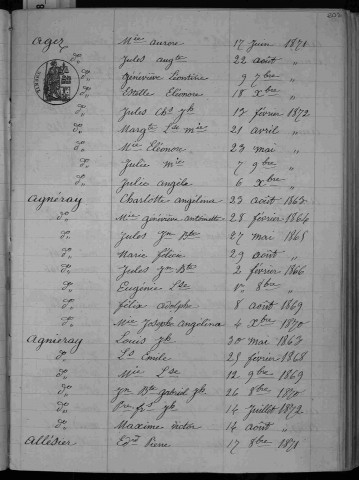 Agez Mie aurore 17 Juin 1871
do Jules augte 22 août "
do Geneviève Léontine 9 7bre "
do Estelle Eléonore 18 Xbre "
do Jules Ch. Jh 13 février 1872
do Margte Lse Mie 21 avril "
do Mie Eléonore 23 mai "
do Julie Mie 7 9bre "
do Julie angèle 6 Xbre "
Agnéray Charlotte angélina 23 août 1863
do Mie geneviève antoinette 28 février 1864
do Jules Jn Bte 27 mai 1865
do Marie 29 août "
do Jules Jn Bte 2 février 1866
do Eugénie Lse 1er 8bre "
do Félix adolphe 8 août 1869
do Mie Josephe angélina 4 Xbre 1870
Agneray Louis Jh 30 mai 1863
do Ls Emile 25 février 1868
do Mie Lse 12 9bre 1869
do Jn Bte gabriel Jh 26 8bre 1870
do Pre Fs Jh 14 Juillet 1872
do Maxime 14 août "
Allésier Edmd Pierre 17 8bre 1871